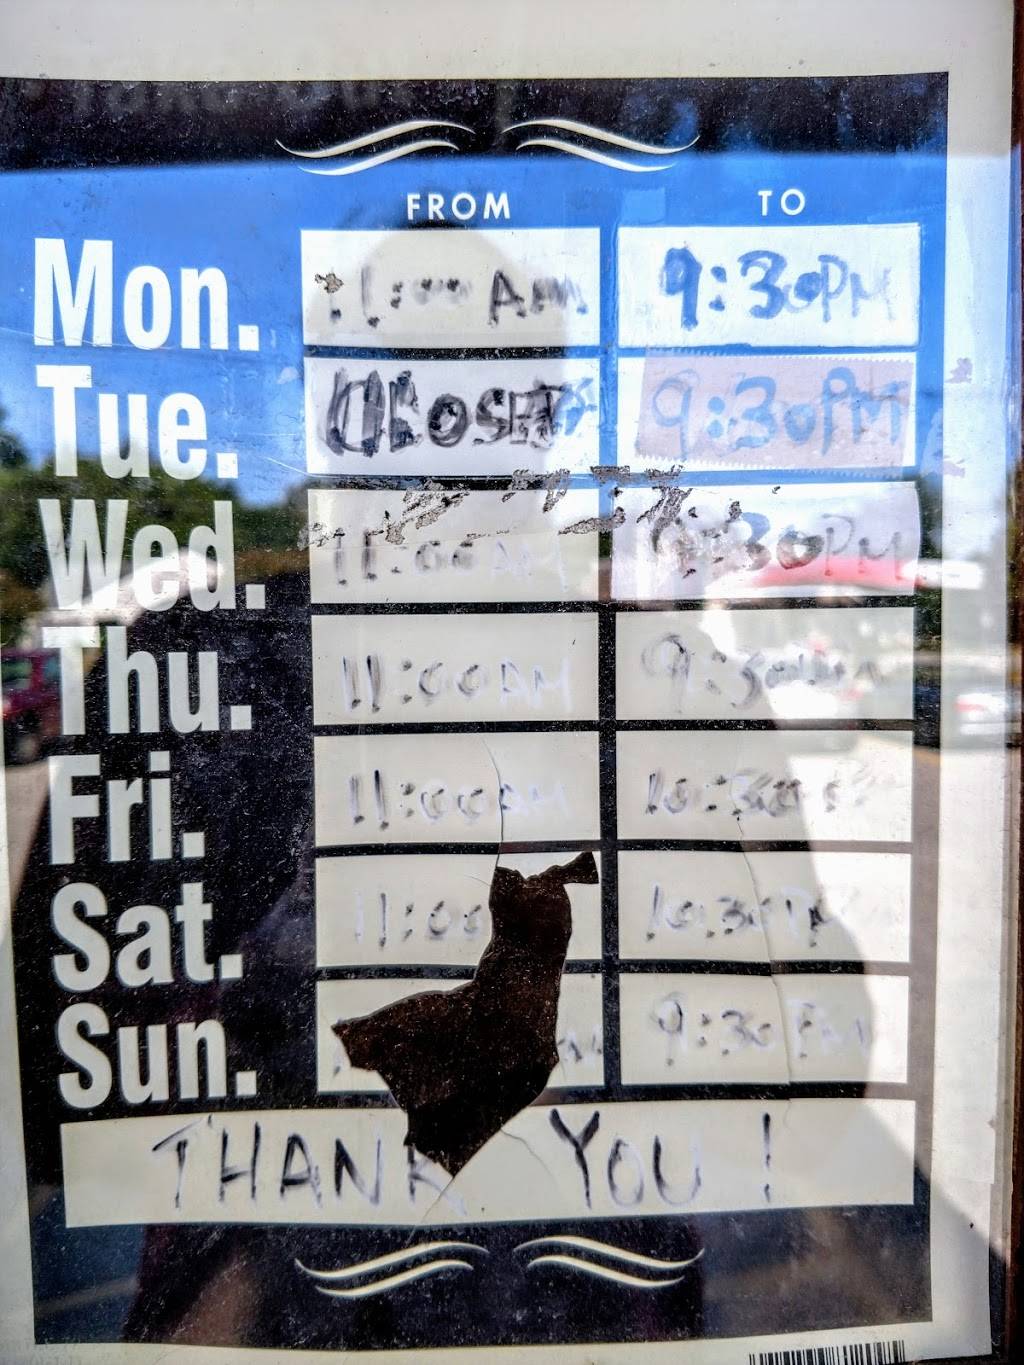 FROM TO
Mon. 11:00 AM 9:30PM
Tue. CLOSED 9:30PM
Wed. 11:00AM 9:30PM
Thu. 11:00AM 9:30
Fri. 11:00AM 10:30
Sat. 11:00 10:30 PM
Sun. 9:30 PM
THANK YOU!